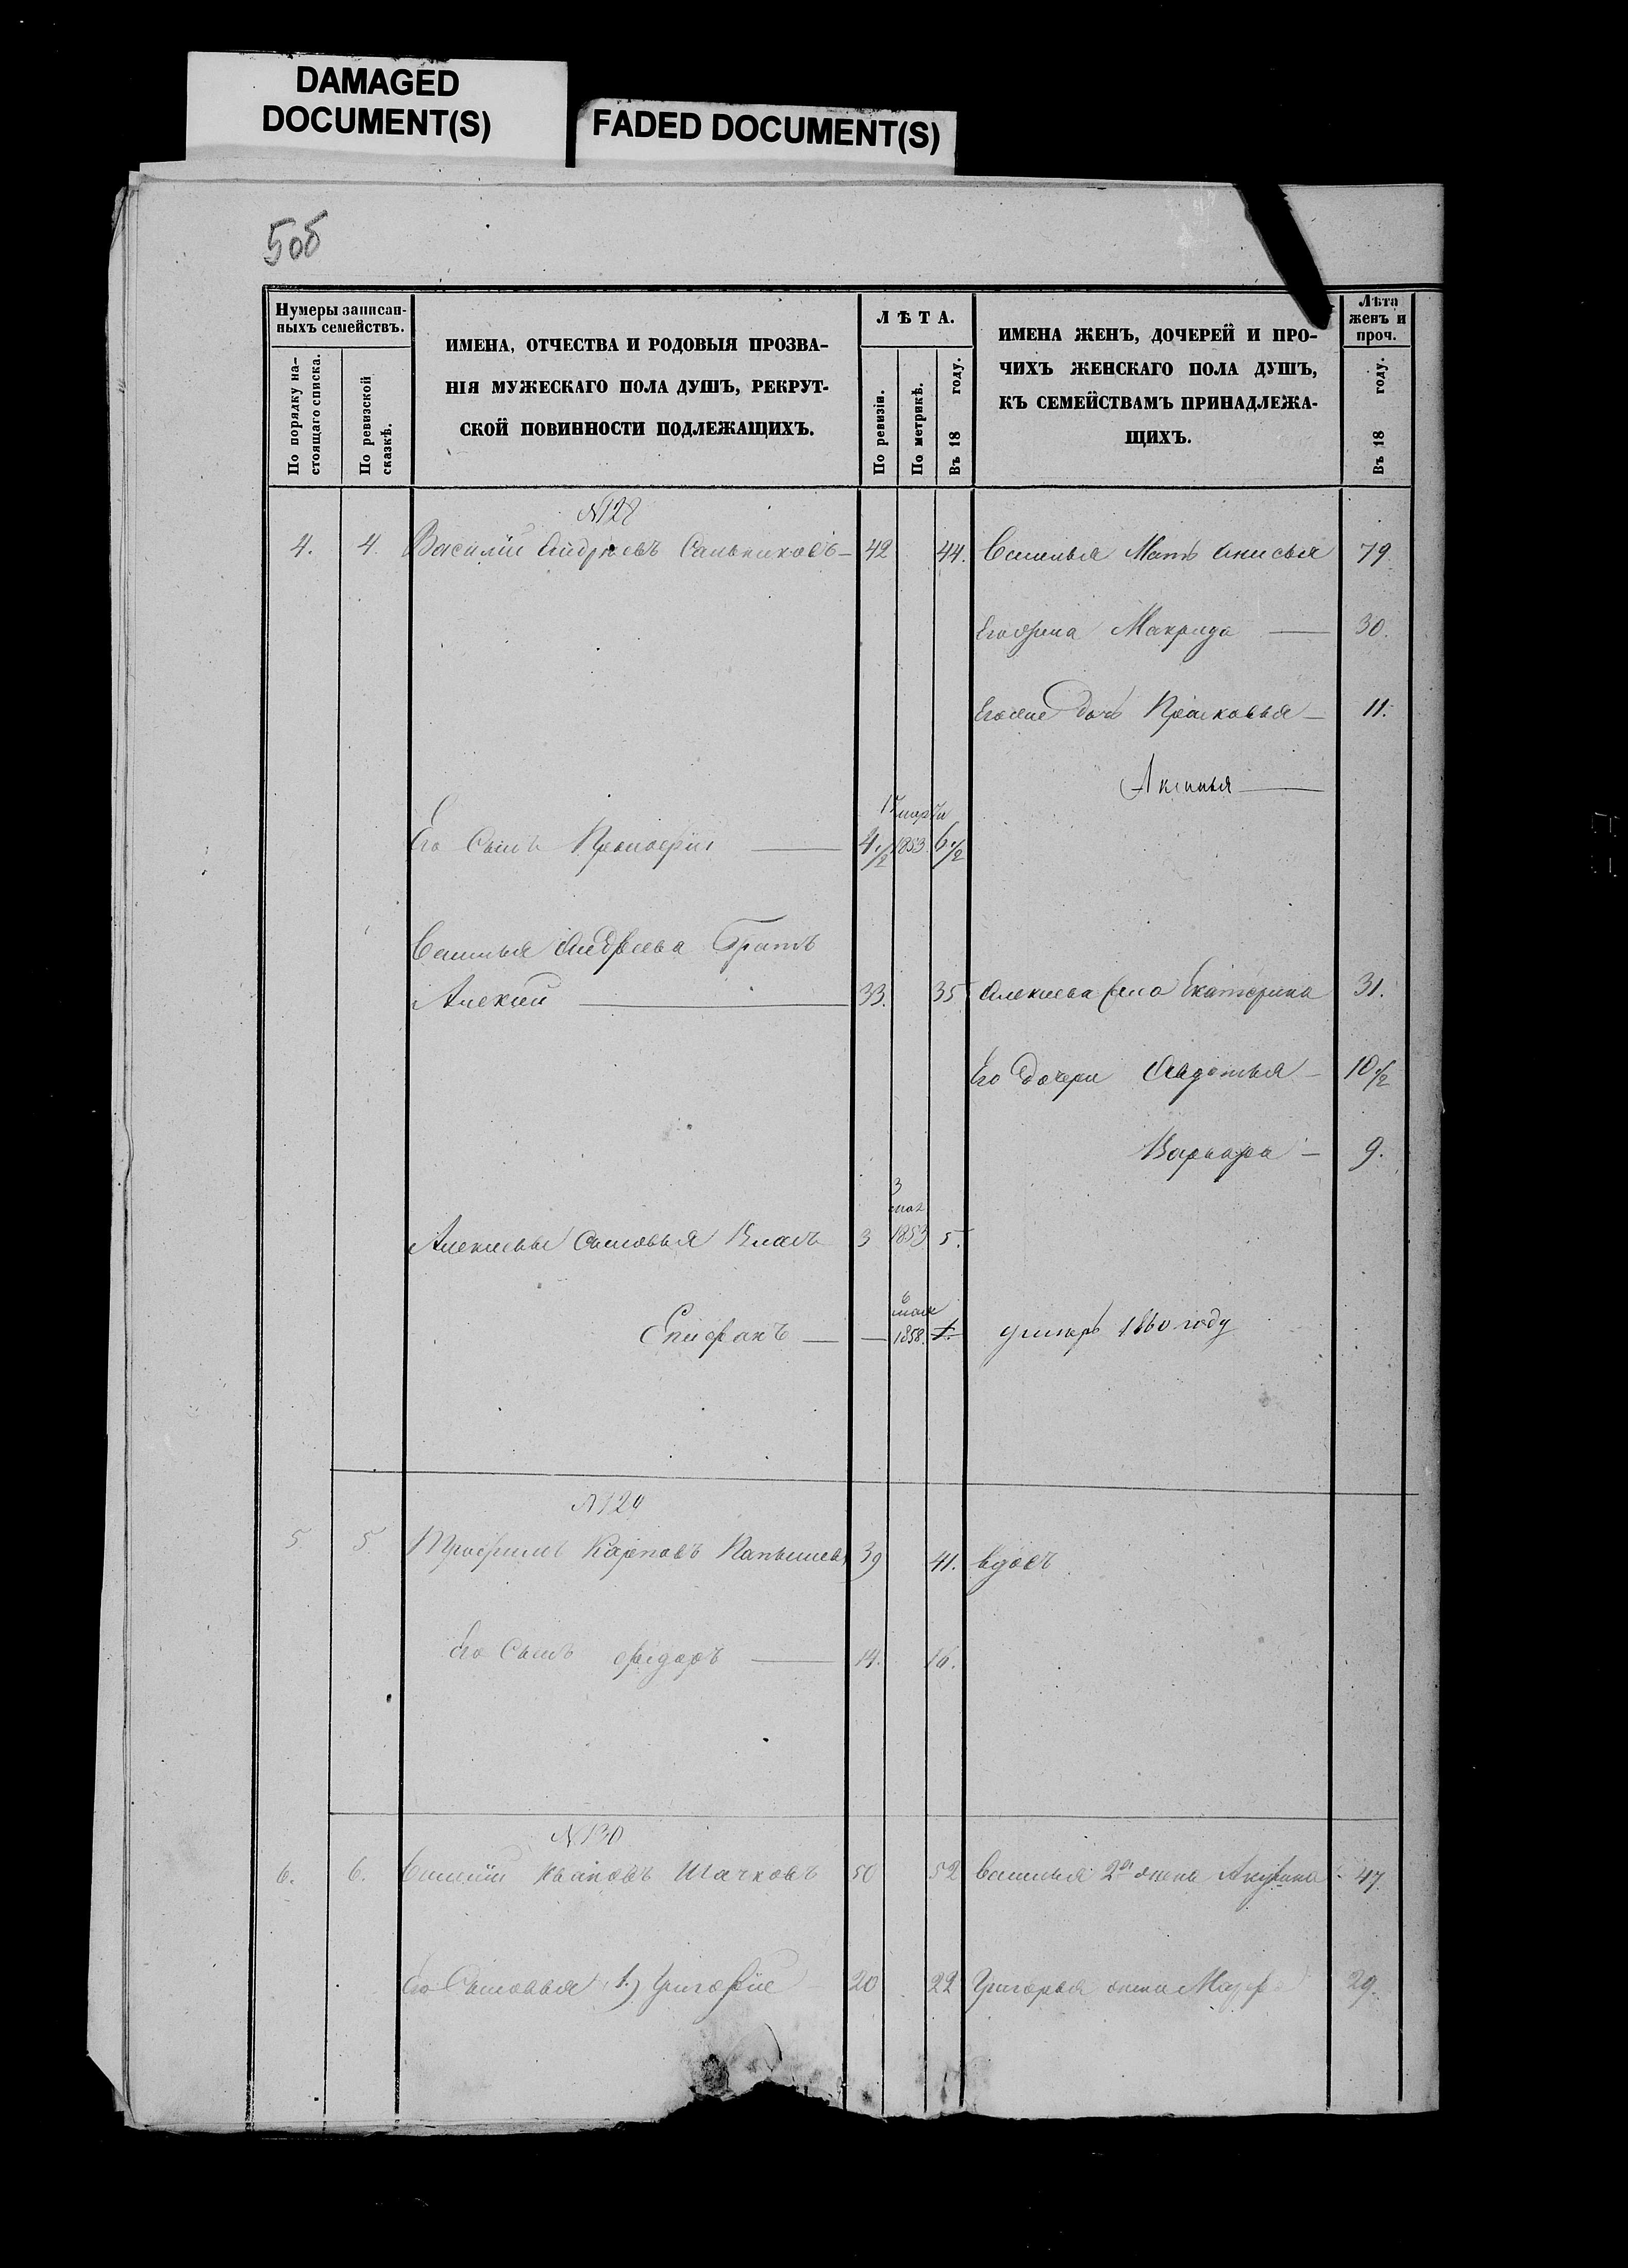 DAMAGED
DOCUMENT(S)
FADED DOCUMENT(S)
50б
Нумеры записан-
ныхъ семействъ.
По порядку на-
стоящаго списка.
По ревизской
сказкѣ.
ИМЕНА, ОТЧЕСТВА И РОДОВЫЯ ПРОЗВА-
НІЯ МУЖЕСКАГО ПОЛА ДУШЪ, РЕКРУТ-
СКОЙ ПОВИННОСТИ ПОДЛЕЖАЩИХЪ.
ЛѢТА.
По ревизіи.
По метрикѣ.
Въ 18 году.
ИМЕНА ЖЕНЪ, ДОЧЕРЕЙ И ПРО-
ЧИХЪ ЖЕНСКАГО ПОЛА ДУШЪ,
КЪ СЕМЕЙСТВАМЪ ПРИНАДЛЕЖА-
ЩИХЪ.
Лѣта
женъ и
проч.
Въ 18 году.
N128
4. 4. Василій Андреевъ 42 44. Василья Мать Анисья 79
Макрида — 30.
дочь Прасковья — 11.
Аксинья —
17 марта
Его Сынъ Прокофій — 4 1/2 1853 6 1/2
Василья Андреева Братъ
Алексей — 33. 35 Алексеева жена Екатерина 31.
Его дочери Авдотья — 10 1/2
Варвара — 9.
3
мая
Алексеевы Сыновья Власъ 3 1853 5.
6
мая
Епифанъ — — 1858. умеръ 1860 году
N129
5 5 Трофимъ Карповъ 39 41. вдовъ
Его Сынъ Федоръ — 14. 16.
N130
6. 6. Василій Ивановъ Шачковъ 50 52 Василья 2я жена Акулина - 47.
Его Сыновья 1.) Григорій 20 22 Григорья жена 29.